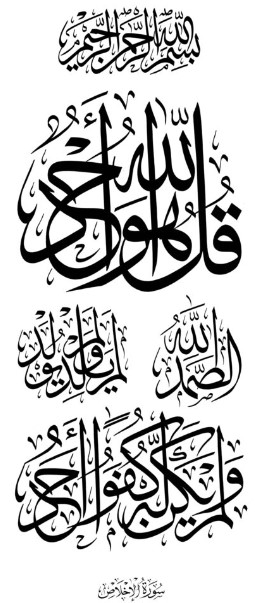 بِسْمِ اللَّهِ الرَّحْمَٰنِ الرَّحِيمِ
قُلْ هُوَ اللَّهُ أَحَدٌ
اللَّهُ الصَّمَدُ لَمْ يَلِدْ وَلَمْ يُولَدْ
وَلَمْ يَكُنْ لَهُ كُفُوًا أَحَدٌ
سُورَةُ الْإِخْلَاصِ